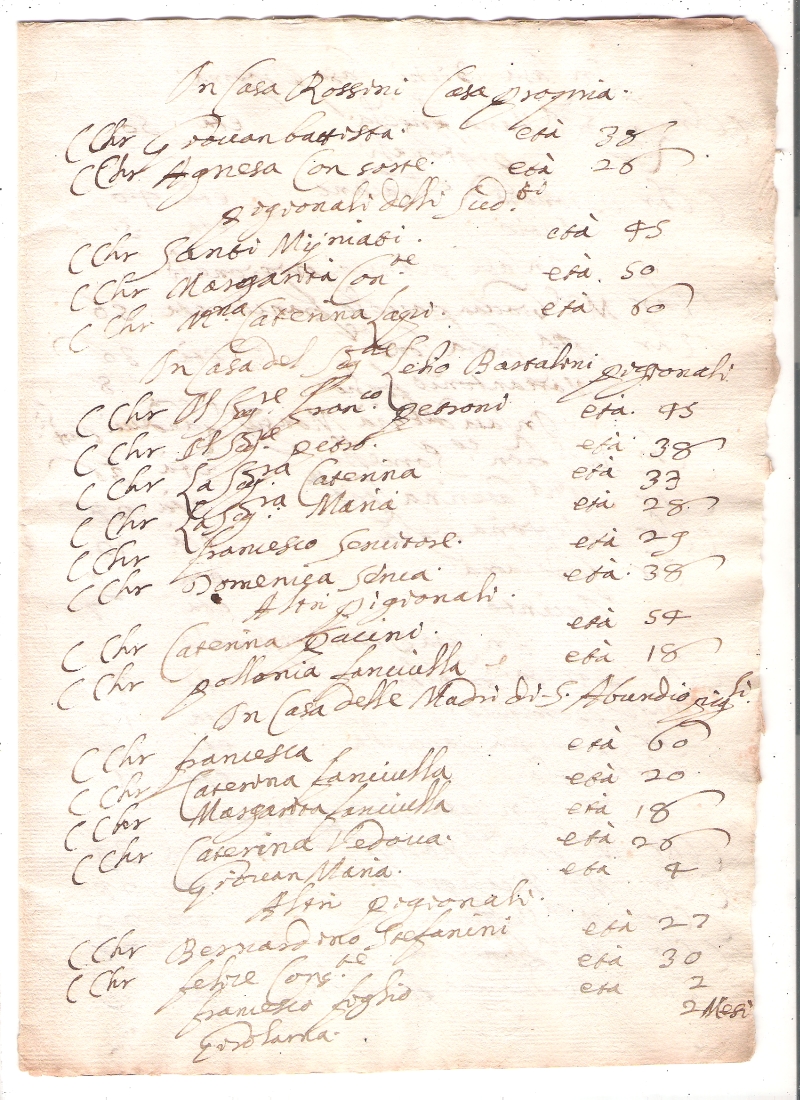 In Casa Rossini Casa propria.
C Chr Giovan battista. età 38
C Chr Agnesa Consorte. età 26
pigionali delli Sud.ti
C Chr Santi Mijniati. età 45
C Chr Margarita Con.te età. 50
C Chr M.na Caterina Lapi. età 60
In Casa del Sig.re Lelio Bartalini pigionali
C Chr Il Sig.re fran.co petroni età. 45
C Chr Il Sig.re petro età. 38
C Chr La Sig.ra Caterina età 33
C Chr La Sig.ra Maria età 28
C Chr francesco Servitore. età 29
C Chr Domenica Serva. età. 38
Altri pigionali.
C Chr Caterina Pacini. età 54
C Chr pollonia fanciulla età 18
In Casa delle Madri di S. Abundio pig.li
C Chr francesca età 60
C Chr Caterina fanciulla età 20
C Chr Margarita fanciulla età 18
C Chr Caterina Vedova. età 26
Giovan Maria. età 4
Altri pigionali.
C Chr Bernardino Stefanini età 27
C Chr felice Cons.te età 30
francesco figlio età 2
Girolama. 2 Mesi